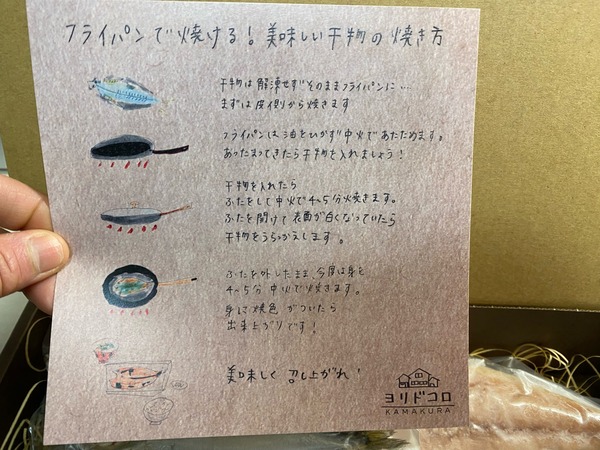 フライパンで焼ける！美味しい干物の焼き方
干物は解凍せずそのままフライパンに…
まずは皮側から焼きます
フライパンは油をひかず中火であたためます。
あったまってきたら干物を入れましょう！
干物を入れたら
ふたをして中火で4〜5分焼きます。
ふたを開けて表面が白くなっていたら
干物をうらっかえします。
ふたを外したまま、今度は身を
4〜5分 中火で焼きます。
身に焼色がついたら
出来上がりです！
美味しく召し上がれ！
ヨリドコロ
KAMAKURA